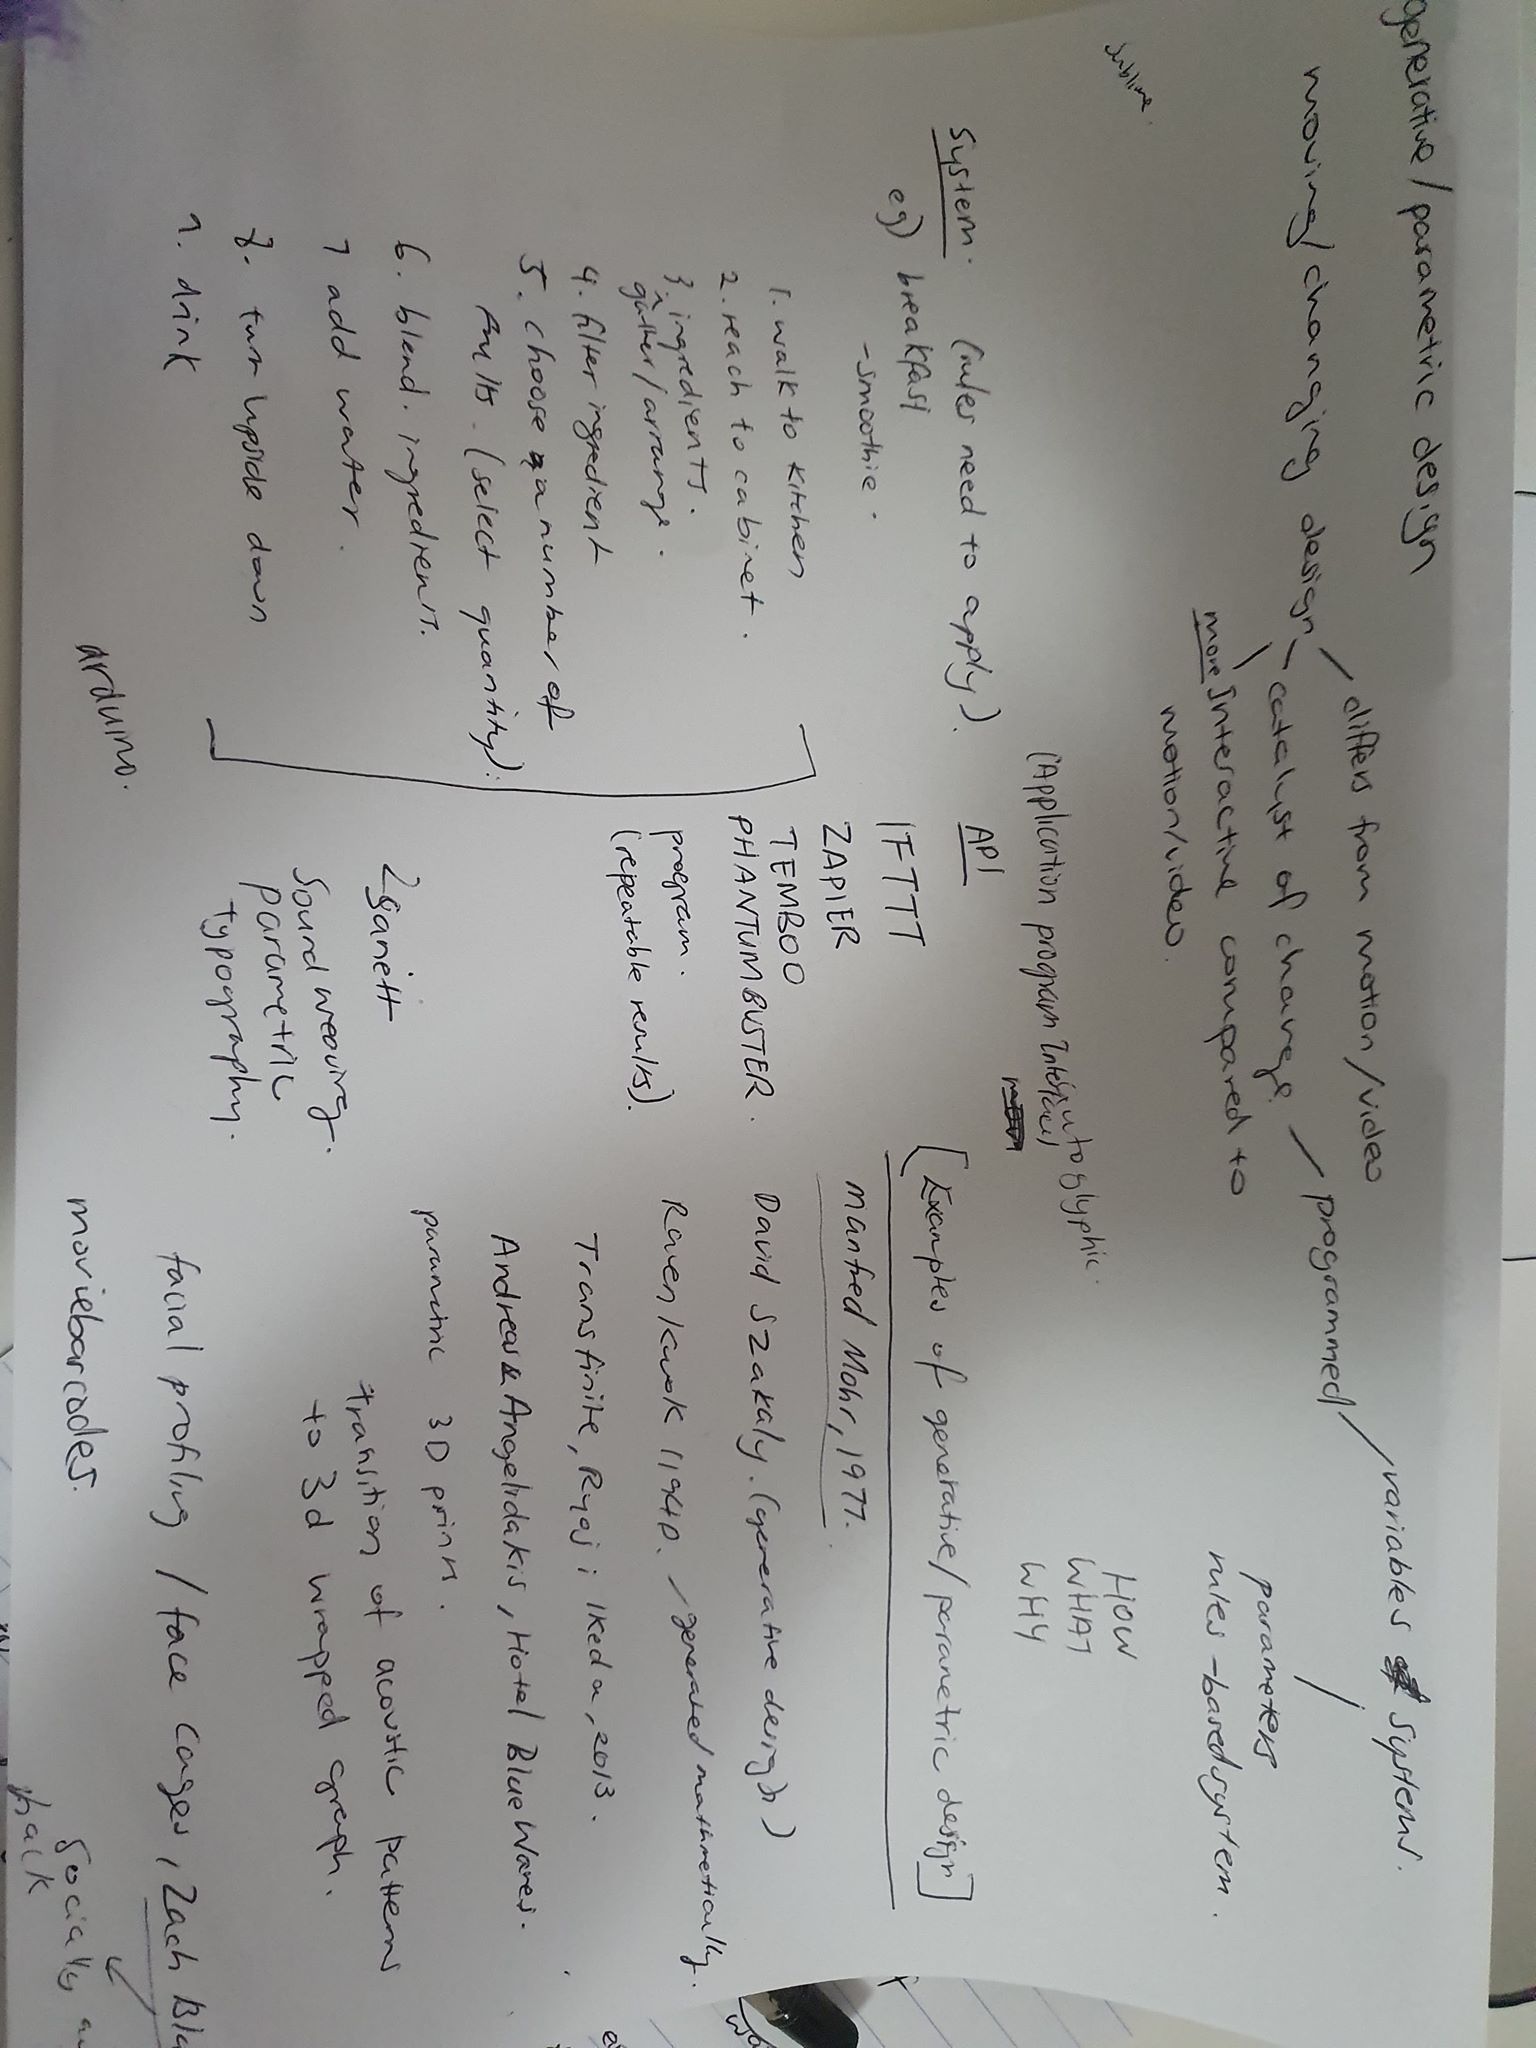 generative/parametric design
moving/changing design
differs from motion/video
catalyst of change
more interactive compared to
motion/video.
programmed
variables
systems.
parameters
rules-based system.
sublime.
System. (rules need to apply).
eg) breakfast
-smoothie.
1. walk to kitchen
2. reach to cabinet.
3. ingredients.
gather/arrange.
4. filter ingredient
5. choose a number of
fruits. (select quantity).
6. blend. ingredients.
7 add water.
8. turn upside down
9. drink
arduino.
(Application program Interface)
API
IFTTT
ZAPIER
TEMBOO
PHANTUMBUSTER.
program.
(repeatable results).
sound weaving.
parametric
typography.
intoglyphic.
HOW
WHAT
WHY
[Examples of generative/parametric design]
Manfred Mohr, 1977.
David Szakaly. (generative design)
Raven Kwok
generated mathmetically.
Transfinite, Ryoji Ikeda, 2013.
Andreas Angelidakis, Hotel Blue Waves.
parametric 3D prints.
transition of acoustic patterns
to 3d wrapped graph.
facial profiling / face cages, Zach Bla
moviebarcodes.
Socially
hack